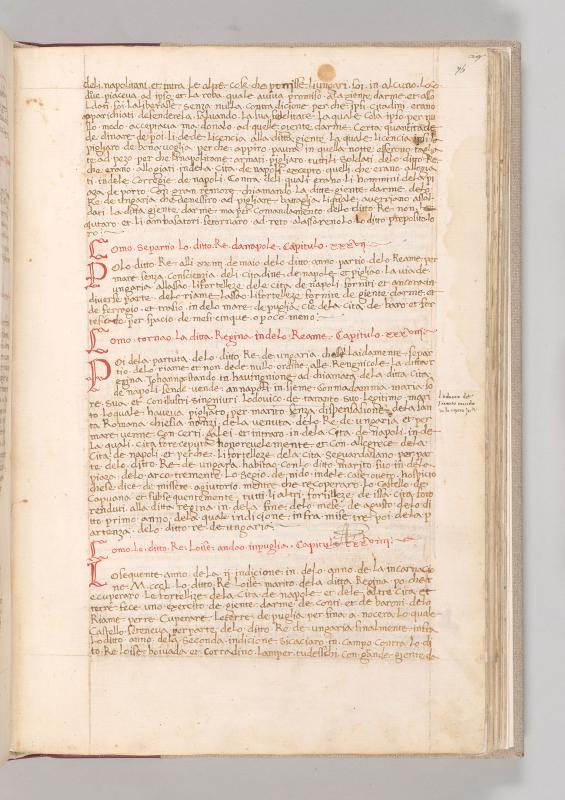 deli napolitani. et intra le altre cose che li ungari soi in alcuno loco
dove piaceva ad ipso et la roba quale aviva promiso ala giente darme et allo
senza nulla contradicione per che ipsi citadini erano
apparichiati defenderela salvando la sua fidelitate. La quale cosa ipso per nu
llo modo acceptava ma donao ad quelle giente darme certa quantitade
de dinare depoi li dede licencia alla ditta giente. La quale licencia
pigliaro de bona voglia per che appiro paura in quella nocte esserono taglia
te ad pezo per che li napolitane armati pigliaro tutti li soldati delo ditto Re
che erano allogiati indela cita de napoli excepto quelli che erano allogia
ti indele Correge de napoli. Contra deli quali erano li hommini dela pi
aza de porto con gran remore chiamando la ditta giente darme delo
Re de ungaria che denessiro ad pigliare bataglia li quale averriano assal
tari la ditta giente darme ma per comandamento dello ditto Re non
qutaro et li ambasaturi retornaro ad reto alassareno lo ditto preposito lo
ro
Como se partio lo ditto Re da napole. Capitulo xxxvii
Polo ditto Re alli xxiiii de maio delo ditto anno partio delo Reame per
mare senza consciencia deli citadine de napole et pigliao la via de
ungaria allassao li fortelleze dele cita de napoli forniti et ancora in
diverse parte delo riame lassao li fortelleze fornite de giente darme et
de ferrogio et trasio in delo mare de puglia cioe dela cita de baro et fer
tescato per spacio de mesi cinque o poco meno
Como torno la ditta Regina indelo Reame. Capitulo xxxviii
Poi dela partuta delo ditto Re de ungaria che si laidamente separ
tio delo riame et non dede nullo ordine alle Rengnicole. La ditta r
egina Johanna stando in havinghione ad chiamata dela ditta cita
de napoli sende vende annapoli insieme con madamma maria so
re sua et con illustri singniuri lodovico de taranto suo legitimo mari
to lo quale haveva pigliato per marito senza dispensacione dela san
ta Romana chiesia nanzi dela venuta delo Re de ungaria et per
mare venne con certi galei et intraro in dela cita de napoli in de
la quali cita fore ceputa honorevelemente et con allegreze dela
cita de napoli et perche li fortelleze dela cita se guardavano per par
te delo ditto Re de ungaria habitao con lo ditto marito suo in delo
piozo delo arco tremonte lo segio de nido indele case overo hospicio
de misere agiutorio mentre che recoperaro lo castello de
Capuana et subsequentemente tutti li altri fortilleze de illa cita foro
renduti alla ditta regina in dela fine delo mese de agusto delo di
tto primo anno dela quale indicione infra mise tre poi dela p
artenza delo ditto re de ungaria
Como lo ditto Re Loise andao in puglia. Capitulo xxxviiii
Lo sequente anno dela ii indicione in delo anno de la incarnacio
ne M.cccl lo ditto Re Loise marito dela ditta Regina po che a
recuperaro le fortelize dela cita de napole et dele altre cita et
terre fece uno exercito de giente darme de conti et de baroni delo
Riame per re cuperare le terre de puglia per fina a nocera lo quale
castello se teneva per parte delo ditto Re de ungaria finalmente infra
lo ditto anno dela seconda indicione si cacciaro in campo contra lo di
tto Re Loise boivada et corradino lamper tudeschi con gande giente da